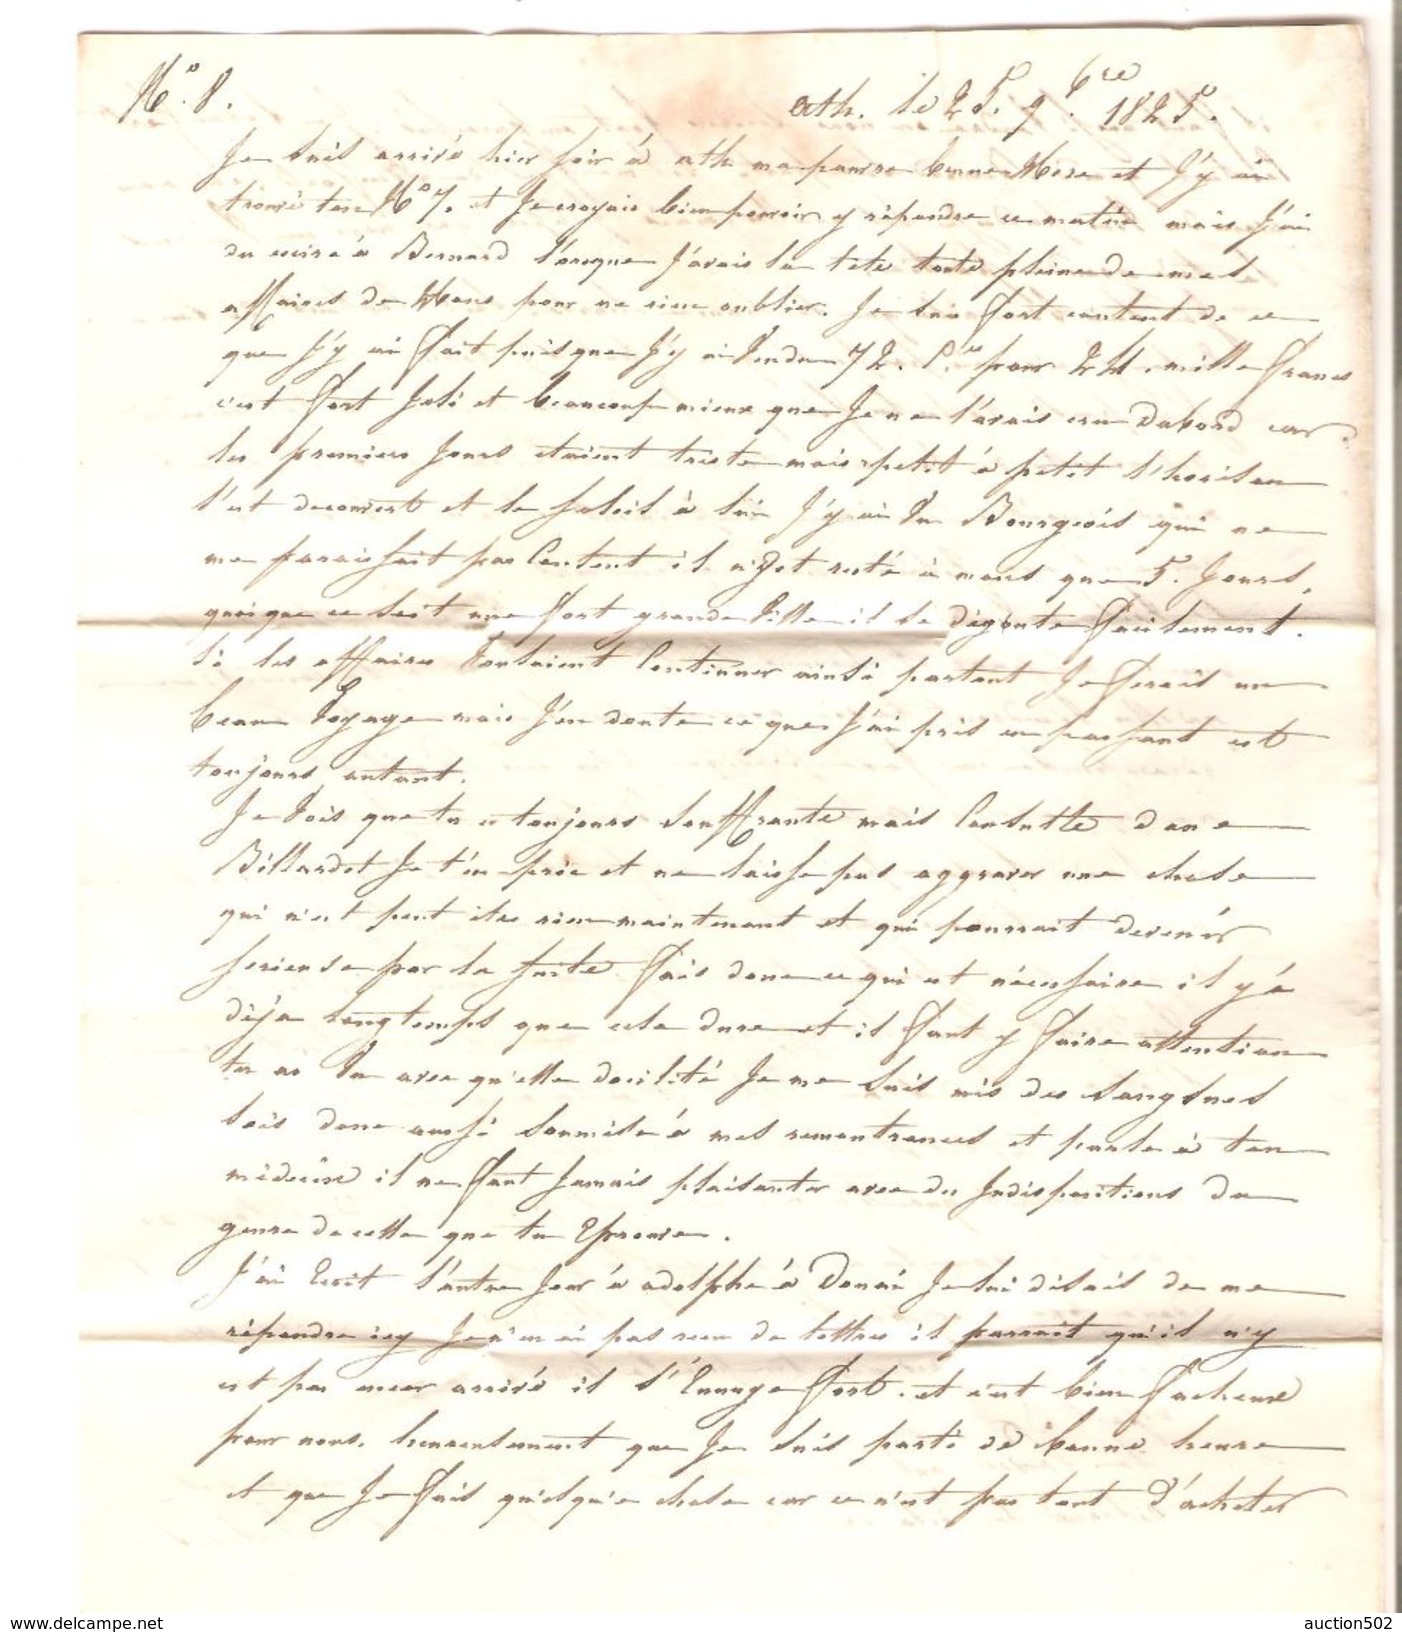 N° 8.
ath. le 25. 9.bre 1825.
Je suis arrivé hier soir à ath ma pauvre bonne Mere et J'y ai
trouvé ton N° 7. et Je croyais bien pouvoir y répondre ce matin mais J'ai
du ecrire à Bernard l'orsque J'avais la tête toute pleine de mes
affaires de Mons pour ne rien oublier. Je suis fort content de ce
que J'y ai fait puisque J'y ai Vendu 72. P.ces pour 24. mille francs
c'est fort Joli et beaucoup mieux que Je ne l'avais cru Dabord car
les premiers Jours etaient triste mais petit à petit l'horison
s'est decouvert et le soleil à lui J'y ai Vu Bourgeois qui ne
me paraissait pas Content il n'est resté à mons que 5. Jours,
quoique ce soit une fort grande Ville il se dégoute facilement.
Si les affaires Voulaient Continuer ainsi partout Je ferais un
beau Voyage mais J'en doute ce que J'ai pris en passant est
toujours autant.
Je Vois que tu es toujours souffrante mais Consulte donc
Billardet Je t'en prie et ne laisse pas aggraver une chose
qui n'est peut être rien maintenant et qui pourrait devenir
serieuse par la suite fais donc ce qui est nécessaire il y à
déja longtemps que cela dure et il faut y faire attention
tu as Vu avec qu'elle docilité Je me suis mis des sangsues
sois donc aussi soumise à mes remontrances et parle à ton
médecin il ne faut Jamais plaisanter avec des Indispositions du
genre de celle que tu Eprouve.
J'ai Ecrit l'autre Jour à adolphe à Douai Je lui disais de me
répondre icy Je n'en ai pas reçu de lettres il parrait qu'il n'y
est pas encor arrivé il s'Ennuye fort. et c'est bien facheux
pour nous. heureusement que Je suis parti de bonne heure
et que Je fais quelqu'e chose car ce n'est pas tout d'acheter
auction502
www.delcampe.net